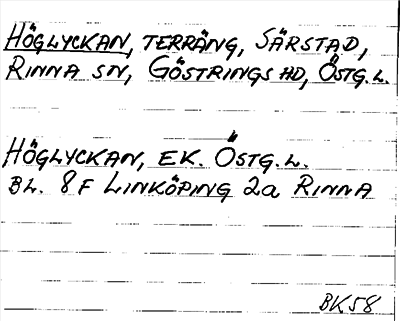 HÖGLYCKAN, TERRÄNG, SÄRSTAD,
RINNA SN, GÖSTRINGS HD, ÖSTG. L.
HÖGLYCKAN, EK. ÖSTG. L.
BL. 8F LINKÖPING 2a RINNA
BK58